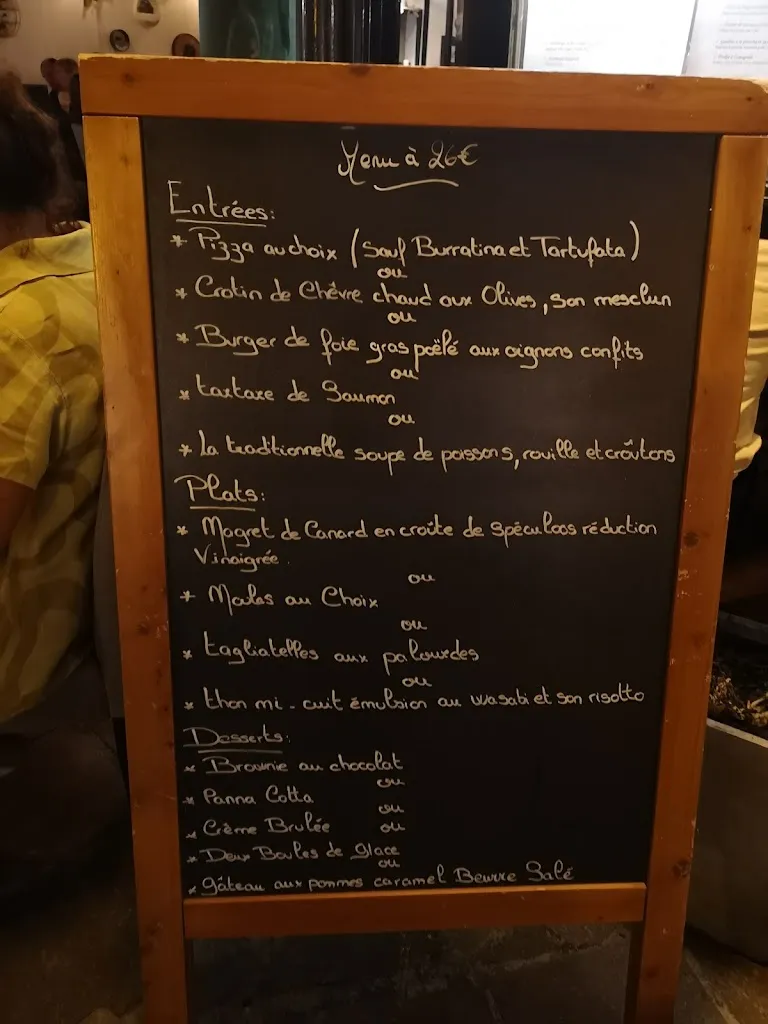 Menu à 26€
Entrées:
* Pizza au choix (Sauf Burratina et Tartufata)
ou
* Crotin de Chêvre chaud aux Olives, son mesclun
ou
* Burger de foie gras poëlé aux oignons confits
ou
* tartare de Saumon
ou
* La traditionnelle soupe de poissons, rouille et croûtons
Plats:
* Magret de Canard en croûte de Spéculoos réduction
Vinaigrée.
ou
* Moules au Choix
ou
* tagliatelles aux palourdes
ou
* thon mi-cuit émulsion au wasabi et son risotto
Desserts:
* Brownie au chocolat
ou
* Panna Cotta
ou
* Crème Brulée
ou
* Deux Boules de glace
ou
* gâteau aux pommes caramel Beurre Salé